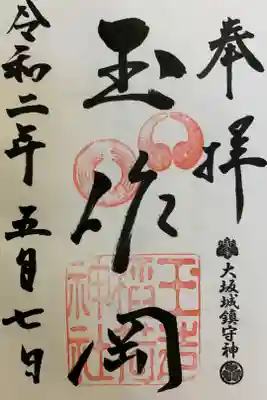 奉拝
大坂城鎮守神
玉作岡
玉造稲荷神社
令和二年五月七日